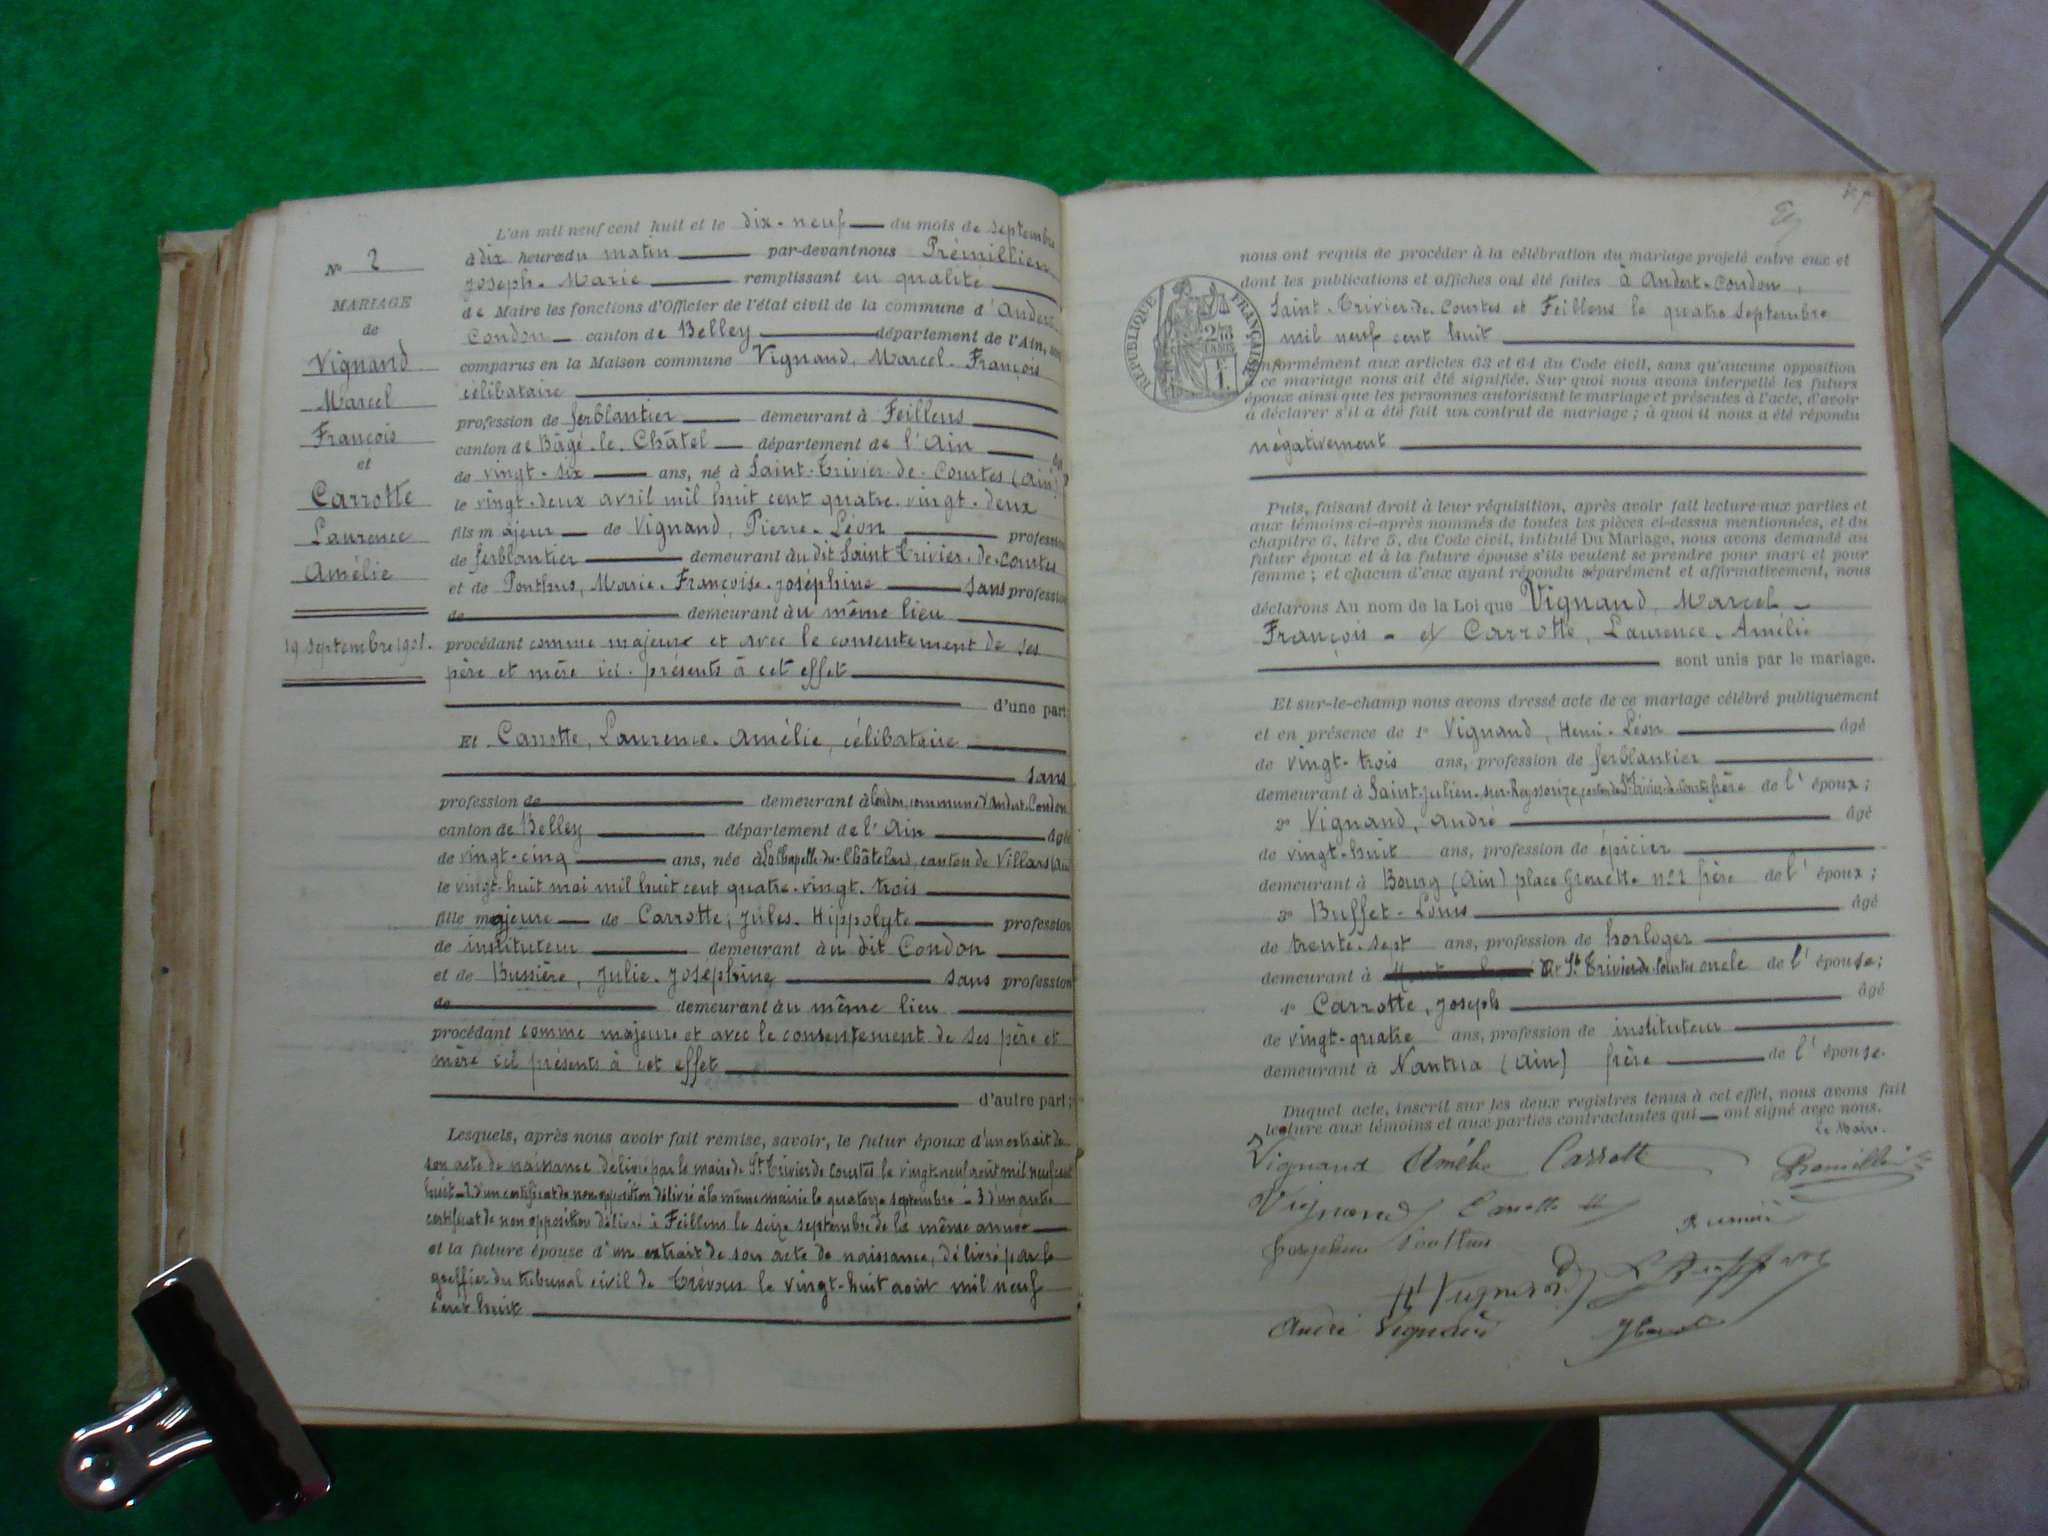 N° 2
MARIAGE
de
Vignand
Marcel
François
et
Carrotte
Laurence
Amélie
19 septembre 1908.
L'an mil neuf cent huit et le dix-neuf du mois de septembre
à dix heures du matin par-devant nous Prémillieu
Joseph-Marie remplissant en qualité
de Maire les fonctions d'Officier de l'état civil de la commune d'Andert-
Condon canton de Belley département de l'Ain, sont
comparus en la Maison commune Vignand, Marcel-François
célibataire
profession de ferblantier demeurant à Feillens
canton de Bâgé-le-Châtel département de l'Ain
de vingt-six ans, né à Saint-Trivier-de-Courtes (Ain)
le vingt-deux avril mil huit cent quatre-vingt-deux
fils majeur de Vignand, Pierre-Léon profession
de ferblantier demeurant au dit Saint Trivier-de-Courtes
et de Ponthus, Marie-Françoise-Joséphine sans profession
de demeurant au même lieu
procédant comme majeur et avec le consentement de ses
père et mère ici présents à cet effet
d'une part;
Et Carrotte, Laurence-Amélie, célibataire
sans
profession de demeurant à Condon, commune d'Andert-Condon
canton de Belley département de l'Ain âgée
de vingt-cinq ans, née à La Chapelle-du-Châtelard, canton de Villars (Ain)
le vingt-huit mai mil huit cent quatre-vingt-trois
fille majeure de Carrotte, Jules-Hippolyte profession
de instituteur demeurant au dit Condon
et de Bussière, Julie-Joséphine, sans profession
de demeurant au même lieu
procédant comme majeure et avec le consentement de ses père et
mère ici présents à cet effet
d'autre part;
Lesquels, après nous avoir fait remise, savoir, le futur époux d'un extrait de
son acte de naissance délivré par le maire de St Trivier de Courtes le vingt-neuf août mil neuf cent
huit - 2 d'un certificat de non opposition délivré à la même mairie le quatorze septembre - 3 d'un autre
certificat de non opposition délivré à Feillens le seize septembre de la même année
et la future épouse d'un extrait de son acte de naissance, délivré par le
greffier du tribunal civil de Trévoux le vingt-huit août mil neuf
cent huit
nous ont requis de procéder à la célébration du mariage projeté entre eux et
dont les publications et affiches ont été faites à Andert-Condon,
Saint-Trivier-de-Courtes et Feillens le quatre septembre
mil neuf cent huit
RÉPUBLIQUE FRANÇAISE
conformément aux articles 63 et 64 du Code civil, sans qu'aucune opposition
à ce mariage nous ait été signifiée. Sur quoi nous avons interpellé les futurs
époux ainsi que les personnes autorisant le mariage et présentes à l'acte, d'avoir
à déclarer s'il a été fait un contrat de mariage; à quoi il nous a été répondu
négativement
Puis, faisant droit à leur réquisition, après avoir fait lecture aux parties et
aux témoins ci-après nommés de toutes les pièces ci-dessus mentionnées, et du
chapitre 6, titre 5, du Code civil, intitulé Du Mariage, nous avons demandé au
futur époux et à la future épouse s'ils veulent se prendre pour mari et pour
femme; et chacun d'eux ayant répondu séparément et affirmativement, nous
déclarons Au nom de la Loi que Vignand, Marcel-
François - et Carrotte, Laurence-Amélie
sont unis par le mariage.
Et sur-le-champ nous avons dressé acte de ce mariage célébré publiquement
et en présence de 1° Vignand, Henri-Léon âgé
de vingt-trois ans, profession de ferblantier
demeurant à Saint-Julien-sur-Reyssouze, canton de St Trivier-de-Courtes frère de l'époux;
2° Vignand, André âgé
de vingt-huit ans, profession de épicier
demeurant à Bourg (Ain) place Grenette n° 2 frère de l'époux;
3° Buffet-Louis âgé
de trente-sept ans, profession de horloger
demeurant à St Trivier de Courtes oncle de l'épouse;
4° Carrotte, Joseph âgé
de vingt-quatre ans, profession de instituteur
demeurant à Nantua (Ain) frère de l'épouse.
Duquel acte, inscrit sur les deux registres tenus à cet effet, nous avons fait
lecture aux témoins et aux parties contractantes qui ont signé avec nous.
le Maire.
Vignand Amélie Carrotte
Vignand Carrotte
Joséphine Ponthus
H Vignand
André Vignand